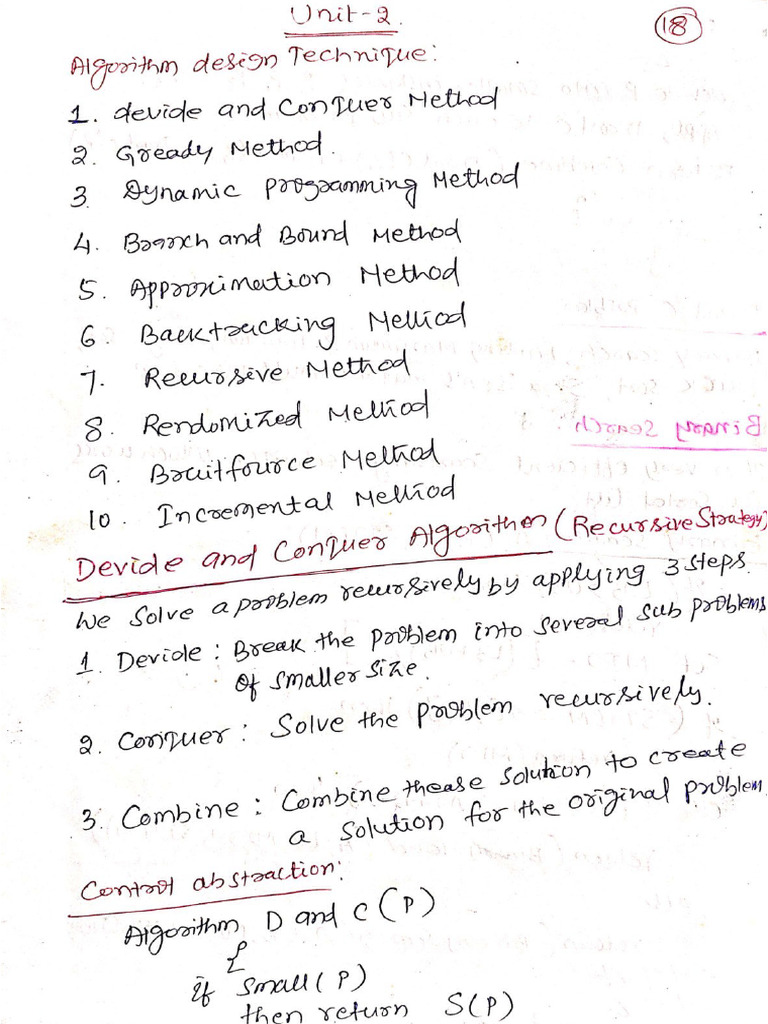 Unit-2.
18
Algorithm design Technique:
1. devide and Conquer Method
2. Gready Method.
3. Dynamic programming Method
4. Branch and Bound Method
5. Approximation Method
6. Backtracking Method
7. Recursive Method
8. Rendomized Method
9. Bruitfource Method
10. Incremental Method
Devide and Conquer Algorithm (Recursive Strategy)
We Solve a problem recursively by applying 3 steps.
1. Devide: Break the problem into several sub problems
of smaller size.
2. Conquer: Solve the problem recursively.
3. Combine: Combine thease solution to create
a solution for the original problem
Control abstraction:
Algorithm D and C (P)
{
if small(P)
then return S(P)
Binary Search